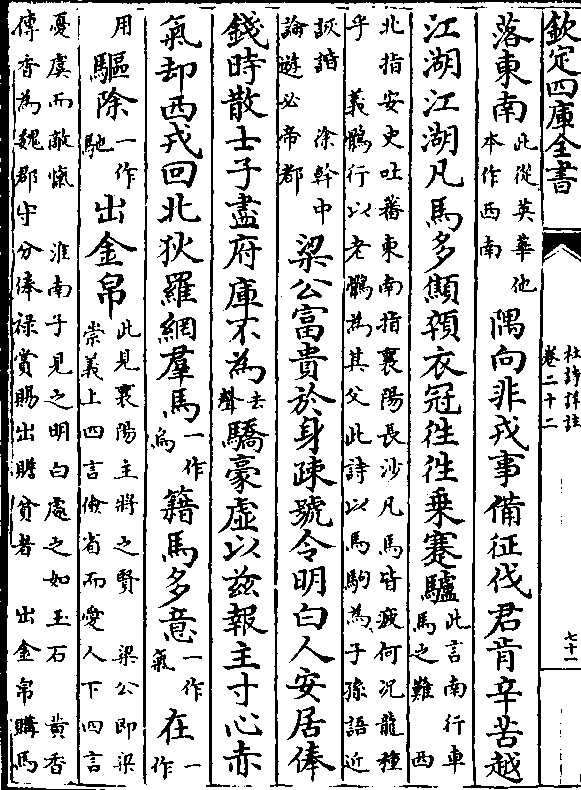 欽定四庫全書
杜詩詳註
卷二十二
七十一
落東南此從英華他本作西南隅向非戎事備征伐君肯辛苦越
江湖江湖凡馬多顦顇衣冠往往乗蹇驢此言南行車馬之難 西
北指安史吐蕃東南指襄陽長沙凡馬皆疲何況龍種
乎 義鶻行以老鶻為其父此詩以馬駒為子孫語近
詼諧 徐幹中論遊必帝都梁公富貴於身疎號令明白人安居俸
錢時散士子盡府庫不為去聲驕豪虛以兹報主寸心赤
氣却西戎回北狄羅網羣馬一作鳥籍馬多意一作氣在一作
用驅除一作馳出金帛此見襄陽主將之賢 梁公即梁崇義上四言儉省而愛人下四言
憂虞而敵愾 淮南子見之明白處之如玉石 黄香
傳香為魏郡守分俸祿賞賜出贍貧者 出金帛購馬